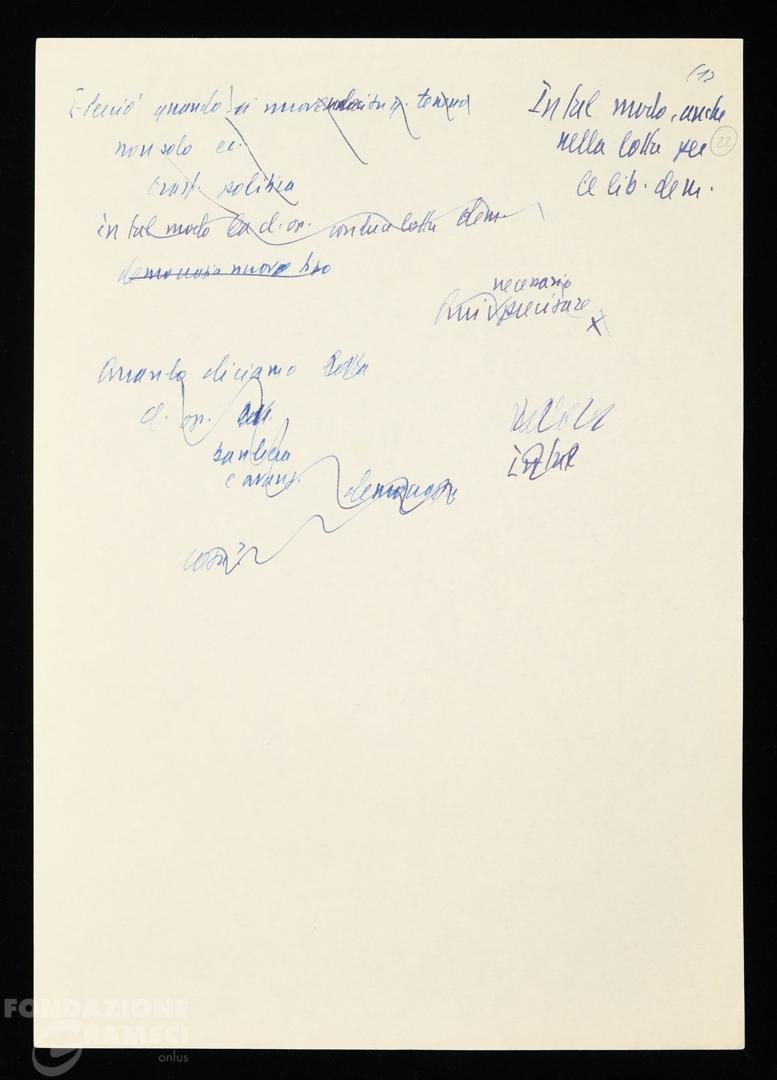 (1)
22
[-Perciò quando si muove tenend
non solo ec.
trasf. politica
in tal modo la cl. op. conduce lotta dem.
democrazia nuovo tipo
In tal modo, anche
nella lotta per
le lib. dem.
necessario
Qui precisare x
Quando diciamo lotta
cl. op.
bandiera
e avanz.
democrazia
cosa?
in tal
FONDAZIONE
GRAMSCI
onlus